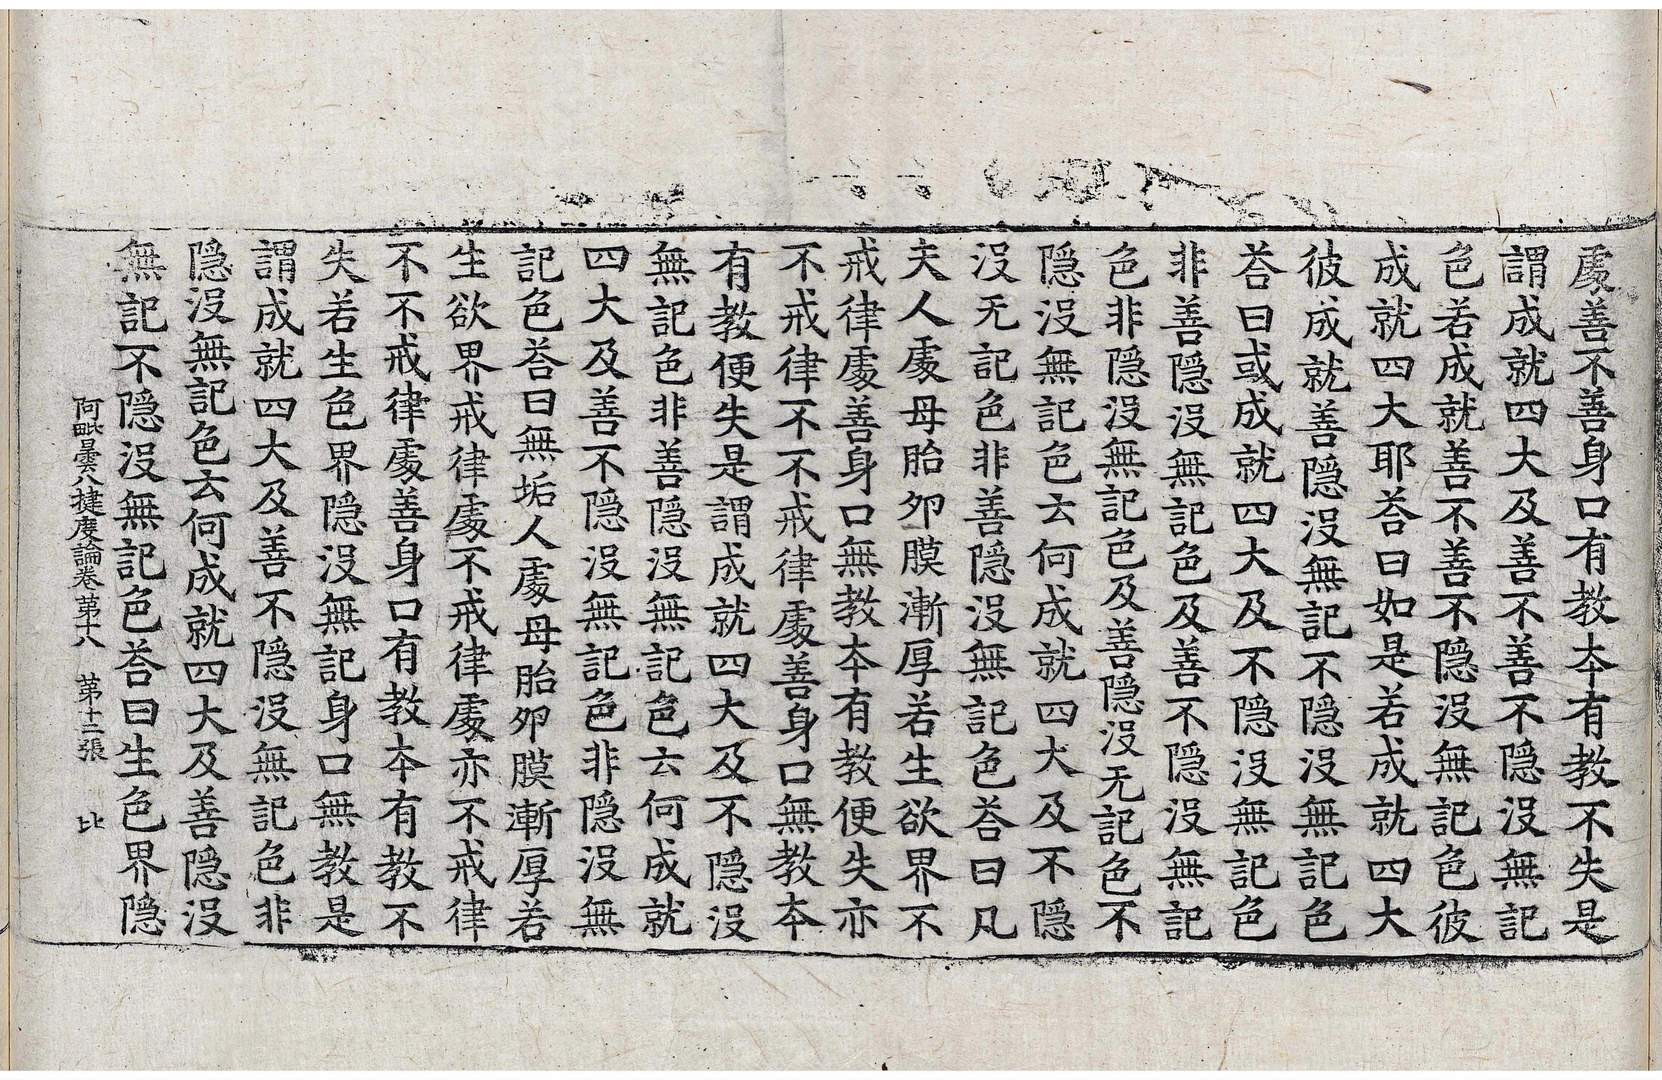 處善不善身口有教本有教不失是
謂成就四大及善不善不隱沒無記
色若成就善不善不隱沒無記色彼
成就四大耶荅曰如是若成就四大
彼成就善隱沒無記不隱沒無記色
荅曰或成就四大及不隱沒無記色
非善隱沒無記色及善不隱沒無記
色非隱沒無記色及善隱沒无記色不
隱沒無記色云何成就四大及不隱
沒无記色非善隱沒無記色荅曰凡
夫人處母胎夘膜漸厚若生欲界不
戒律處善身口無教本有教便失亦
不戒律不不戒律處善身口無教本
有教便失是謂成就四大及不隱沒
無記色非善隱沒無記色云何成就
四大及善不隱沒無記色非隱沒無
記色荅曰無垢人處母胎夘膜漸厚若
生欲界戒律處不戒律處亦不戒律
不不戒律處善身口有教本有教不
失若生色界隱沒無記身口無教是
謂成就四大及善不隱沒無記色非
隱沒無記色云何成就四大及善隱沒
無記不隱沒無記色荅曰生色界隱
阿毗曇八揵度論卷第十八 第十三張 比